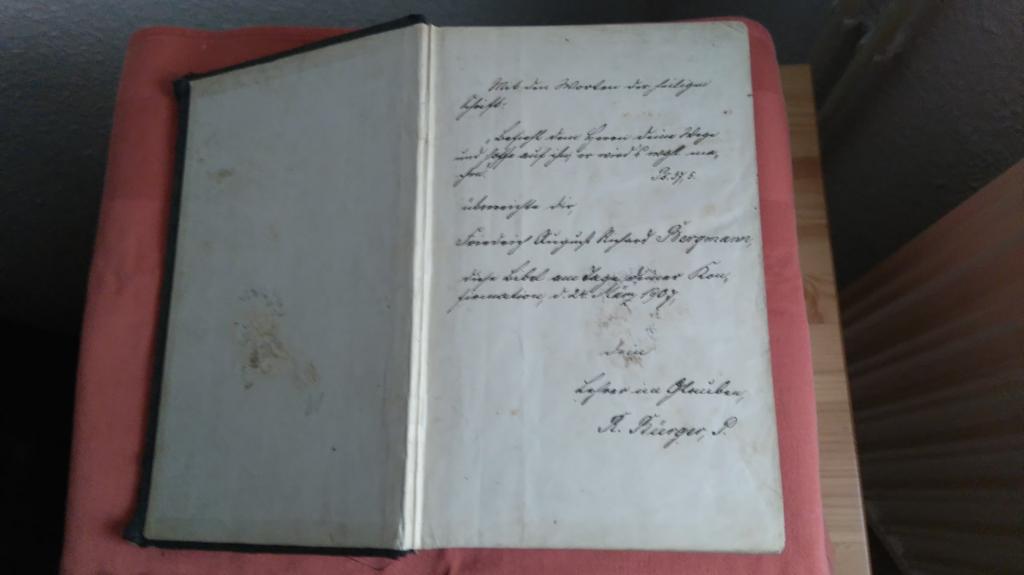 Mit den Worten der heiligen
Schrift:
„Befiehl dem Herren deine Wege
und hoffe auf ihn, er wird's wohl ma-
chen."
Ps. 37, 5.
überreichte dir,
Friedrich August Richard Bergmann,
diese Bibel am Tage deiner Kon-
firmation, d. 24. März 1907,
dein
Lehrer im Glauben,
R. Bürger, P.